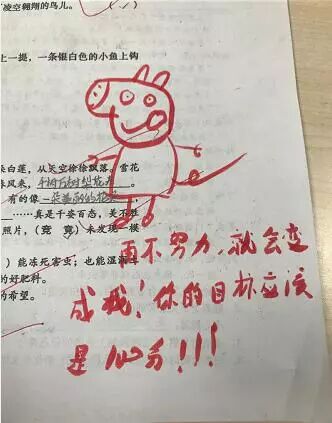 凌空翱翔的鸟儿。
上一提，一条银白色的小鱼上钩
白莲，从天空徐徐飘落。雪花
风来，千树万树梨花开。
有的像
……真是千姿百态，美不胜
照片，（竞 竟）未发现一模
）能冻死害虫；也能滋润
的好肥料。
的希望。
再不努力，就会变
成我！你的目标应该
是100分！！！